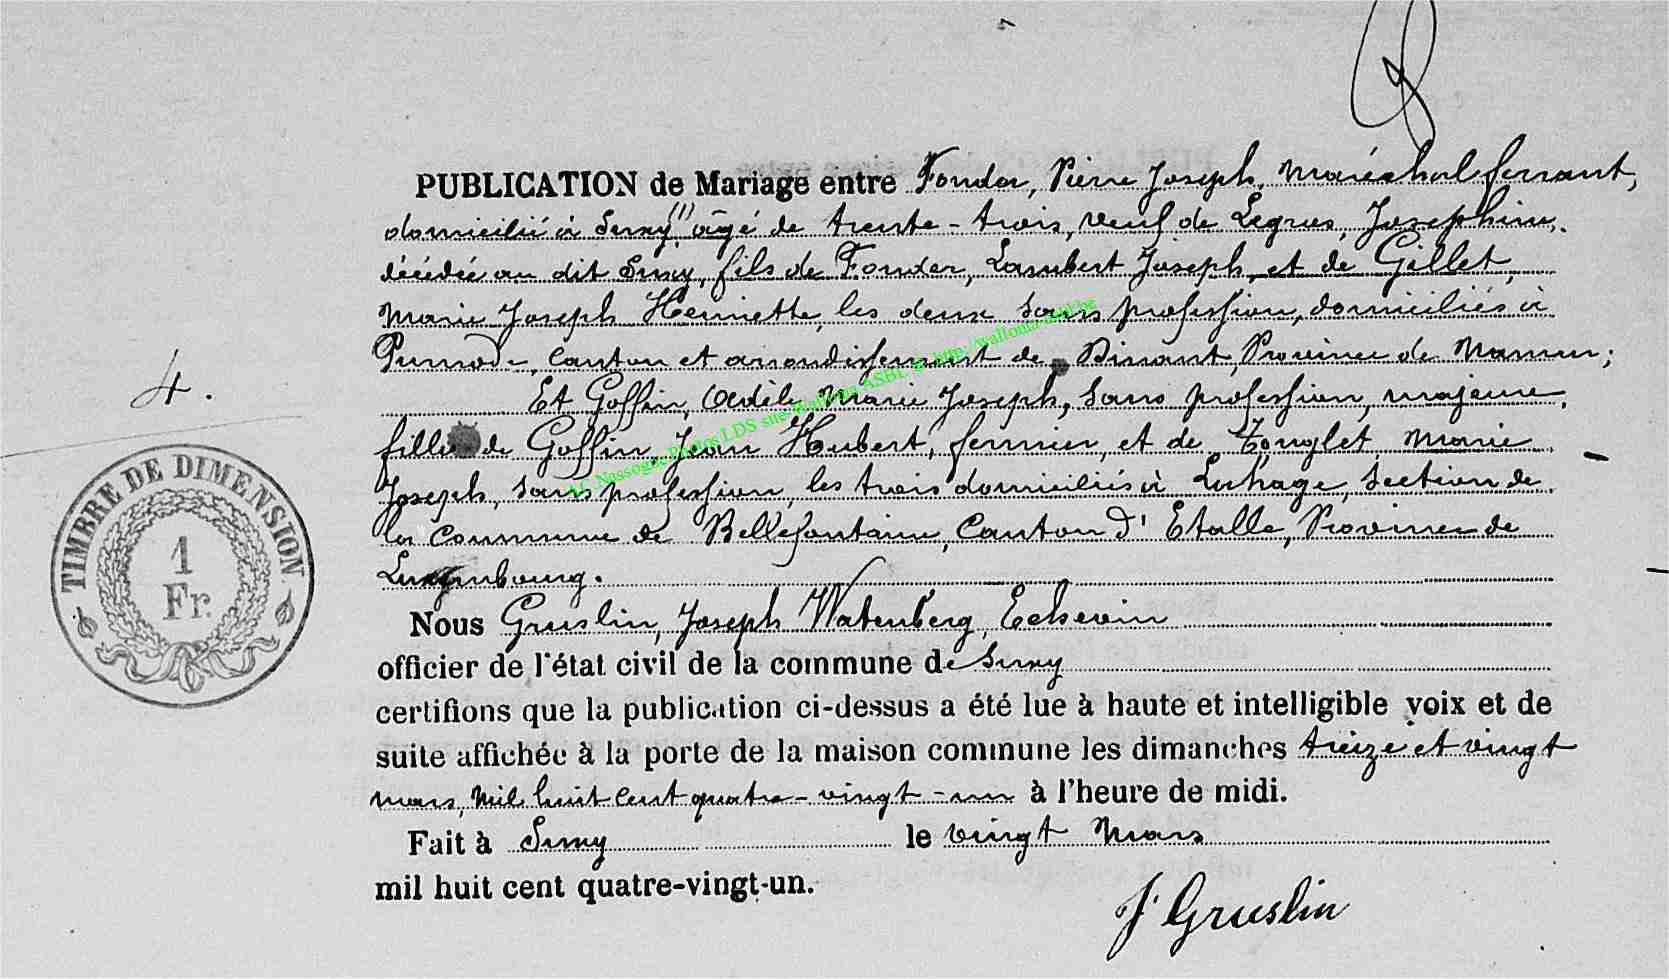 PUBLICATION de Mariage entre Fonder, Pierre Joseph, Maréchal ferrant,
domicilié à Smuy (1) âgé de trente-trois, veuf de Legros, Josephine,
décédée au dit Smuy, fils de Fonder, Lambert Joseph, et de Gillet,
Marie Joseph Henriette, les deux sans profession, domiciliés à
Purnode, canton et arrondissement de Dinant, Province de Namur;
4.
Et Goffin, Adèle Marie Joseph, sans profession, majeure,
fille de Goffin, Jean Hubert, fermier, et de Tonglet, Marie
Joseph, sans profession, les trois domiciliés à Lahage, section de
la commune de Bellefontaine, Canton d'Etalle, Province de
Luxembourg.
TIMBRE DE DIMENSION
1
Fr.
Nous Gruslin, Joseph Watenberg, Echevin
officier de l'état civil de la commune de Smuy
certifions que la publication ci-dessus a été lue à haute et intelligible voix et de
suite affichée à la porte de la maison commune les dimanches treize et vingt
mars, mil huit cent quatre-vingt-un à l'heure de midi.
Fait à Smuy le vingt Mars
mil huit cent quatre-vingt-un.
J Gruslin